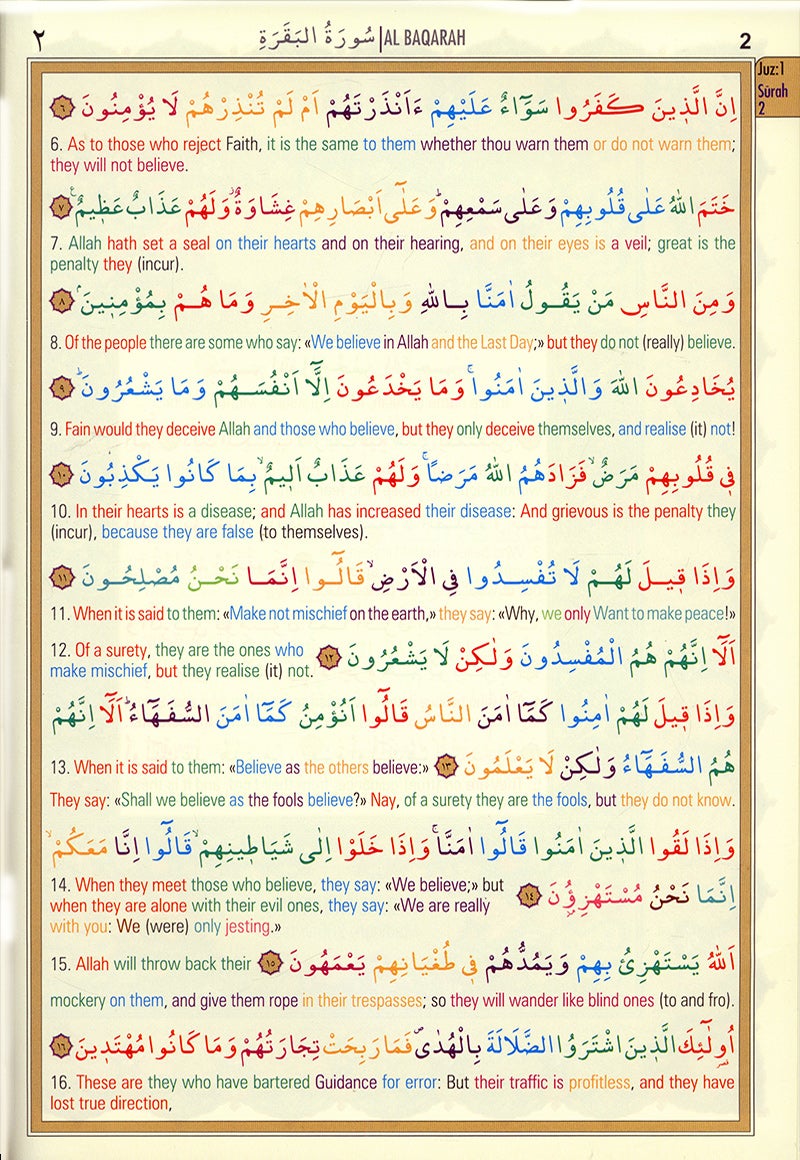 ٢ سُورَةُ البَقَرَةِ | AL BAQARAH 2
Juz:1
Sûrah
2
اِنَّ الَّذ۪ينَ كَفَرُوا سَوَٓاءٌ عَلَيْهِمْ ءَاَنْذَرْتَهُمْ اَمْ لَمْ تُنْذِرْهُمْ لَا يُؤْمِنُونَ ﴿٦﴾
6. As to those who reject Faith, it is the same to them whether thou warn them or do not warn them;
they will not believe.
خَتَمَ اللّٰهُ عَلٰى قُلُوبِهِمْ وَعَلٰى سَمْعِهِمْۜ وَعَلٰٓى اَبْصَارِهِمْ غِشَاوَةٌۘ وَلَهُمْ عَذَابٌ عَظ۪يمٌ۟ ﴿٧﴾
7. Allah hath set a seal on their hearts and on their hearing, and on their eyes is a veil; great is the
penalty they (incur).
وَمِنَ النَّاسِ مَنْ يَقُولُ اٰمَنَّا بِاللّٰهِ وَبِالْيَوْمِ الْاٰخِرِ وَمَا هُمْ بِمُؤْمِن۪ينَۢ ﴿٨﴾
8. Of the people there are some who say: «We believe in Allah and the Last Day;» but they do not (really) believe.
يُخَادِعُونَ اللّٰهَ وَالَّذ۪ينَ اٰمَنُواۚ وَمَا يَخْدَعُونَ اِلَّٓا اَنْفُسَهُمْ وَمَا يَشْعُرُونَۜ ﴿٩﴾
9. Fain would they deceive Allah and those who believe, but they only deceive themselves, and realise (it) not!
ف۪ي قُلُوبِهِمْ مَرَضٌۙ فَزَادَهُمُ اللّٰهُ مَرَضاًۚ وَلَهُمْ عَذَابٌ اَل۪يمٌۙ بِمَا كَانُوا يَكْذِبُونَ ﴿١٠﴾
10. In their hearts is a disease; and Allah has increased their disease: And grievous is the penalty they
(incur), because they are false (to themselves).
وَاِذَا ق۪يلَ لَهُمْ لَا تُفْسِدُوا فِي الْاَرْضِۙ قَالُٓوا اِنَّمَا نَحْنُ مُصْلِحُونَ ﴿١١﴾
11. When it is said to them: «Make not mischief on the earth,» they say: «Why, we only Want to make peace!»
اَلَٓا اِنَّهُمْ هُمُ الْمُفْسِدُونَ وَلٰكِنْ لَا يَشْعُرُونَ ﴿١٢﴾
12. Of a surety, they are the ones who
make mischief, but they realise (it) not.
وَاِذَا ق۪يلَ لَهُمْ اٰمِنُوا كَمَٓا اٰمَنَ النَّاسُ قَالُٓوا اَنُؤْمِنُ كَمَٓا اٰمَنَ السُّفَهَٓاءُۜ اَلَٓا اِنَّهُمْ
هُمُ السُّفَهَٓاءُ وَلٰكِنْ لَا يَعْلَمُونَ ﴿١٣﴾
13. When it is said to them: «Believe as the others believe:»
They say: «Shall we believe as the fools believe?» Nay, of a surety they are the fools, but they do not know.
وَاِذَا لَقُوا الَّذ۪ينَ اٰمَنُوا قَالُٓوا اٰمَنَّاۚ وَاِذَا خَلَوْا اِلٰى شَيَاط۪ينِهِمْۙ قَالُٓوا اِنَّا مَعَكُمْۙ
اِنَّمَا نَحْنُ مُسْتَهْزِؤُ۫نَ ﴿١٤﴾
14. When they meet those who believe, they say: «We believe;» but
when they are alone with their evil ones, they say: «We are really
with you: We (were) only jesting.»
اَللّٰهُ يَسْتَهْزِئُ بِهِمْ وَيَمُدُّهُمْ ف۪ي طُغْيَانِهِمْ يَعْمَهُونَ ﴿١٥﴾
15. Allah will throw back their
mockery on them, and give them rope in their trespasses; so they will wander like blind ones (to and fro).
اُو۬لٰٓئِكَ الَّذ۪ينَ اشْتَرَوُا الضَّلَالَةَ بِالْهُدٰىۖ فَمَا رَبِحَتْ تِجَارَتُهُمْ وَمَا كَانُوا مُهْتَد۪ينَ ﴿١٦﴾
16. These are they who have bartered Guidance for error: But their traffic is profitless, and they have
lost true direction,